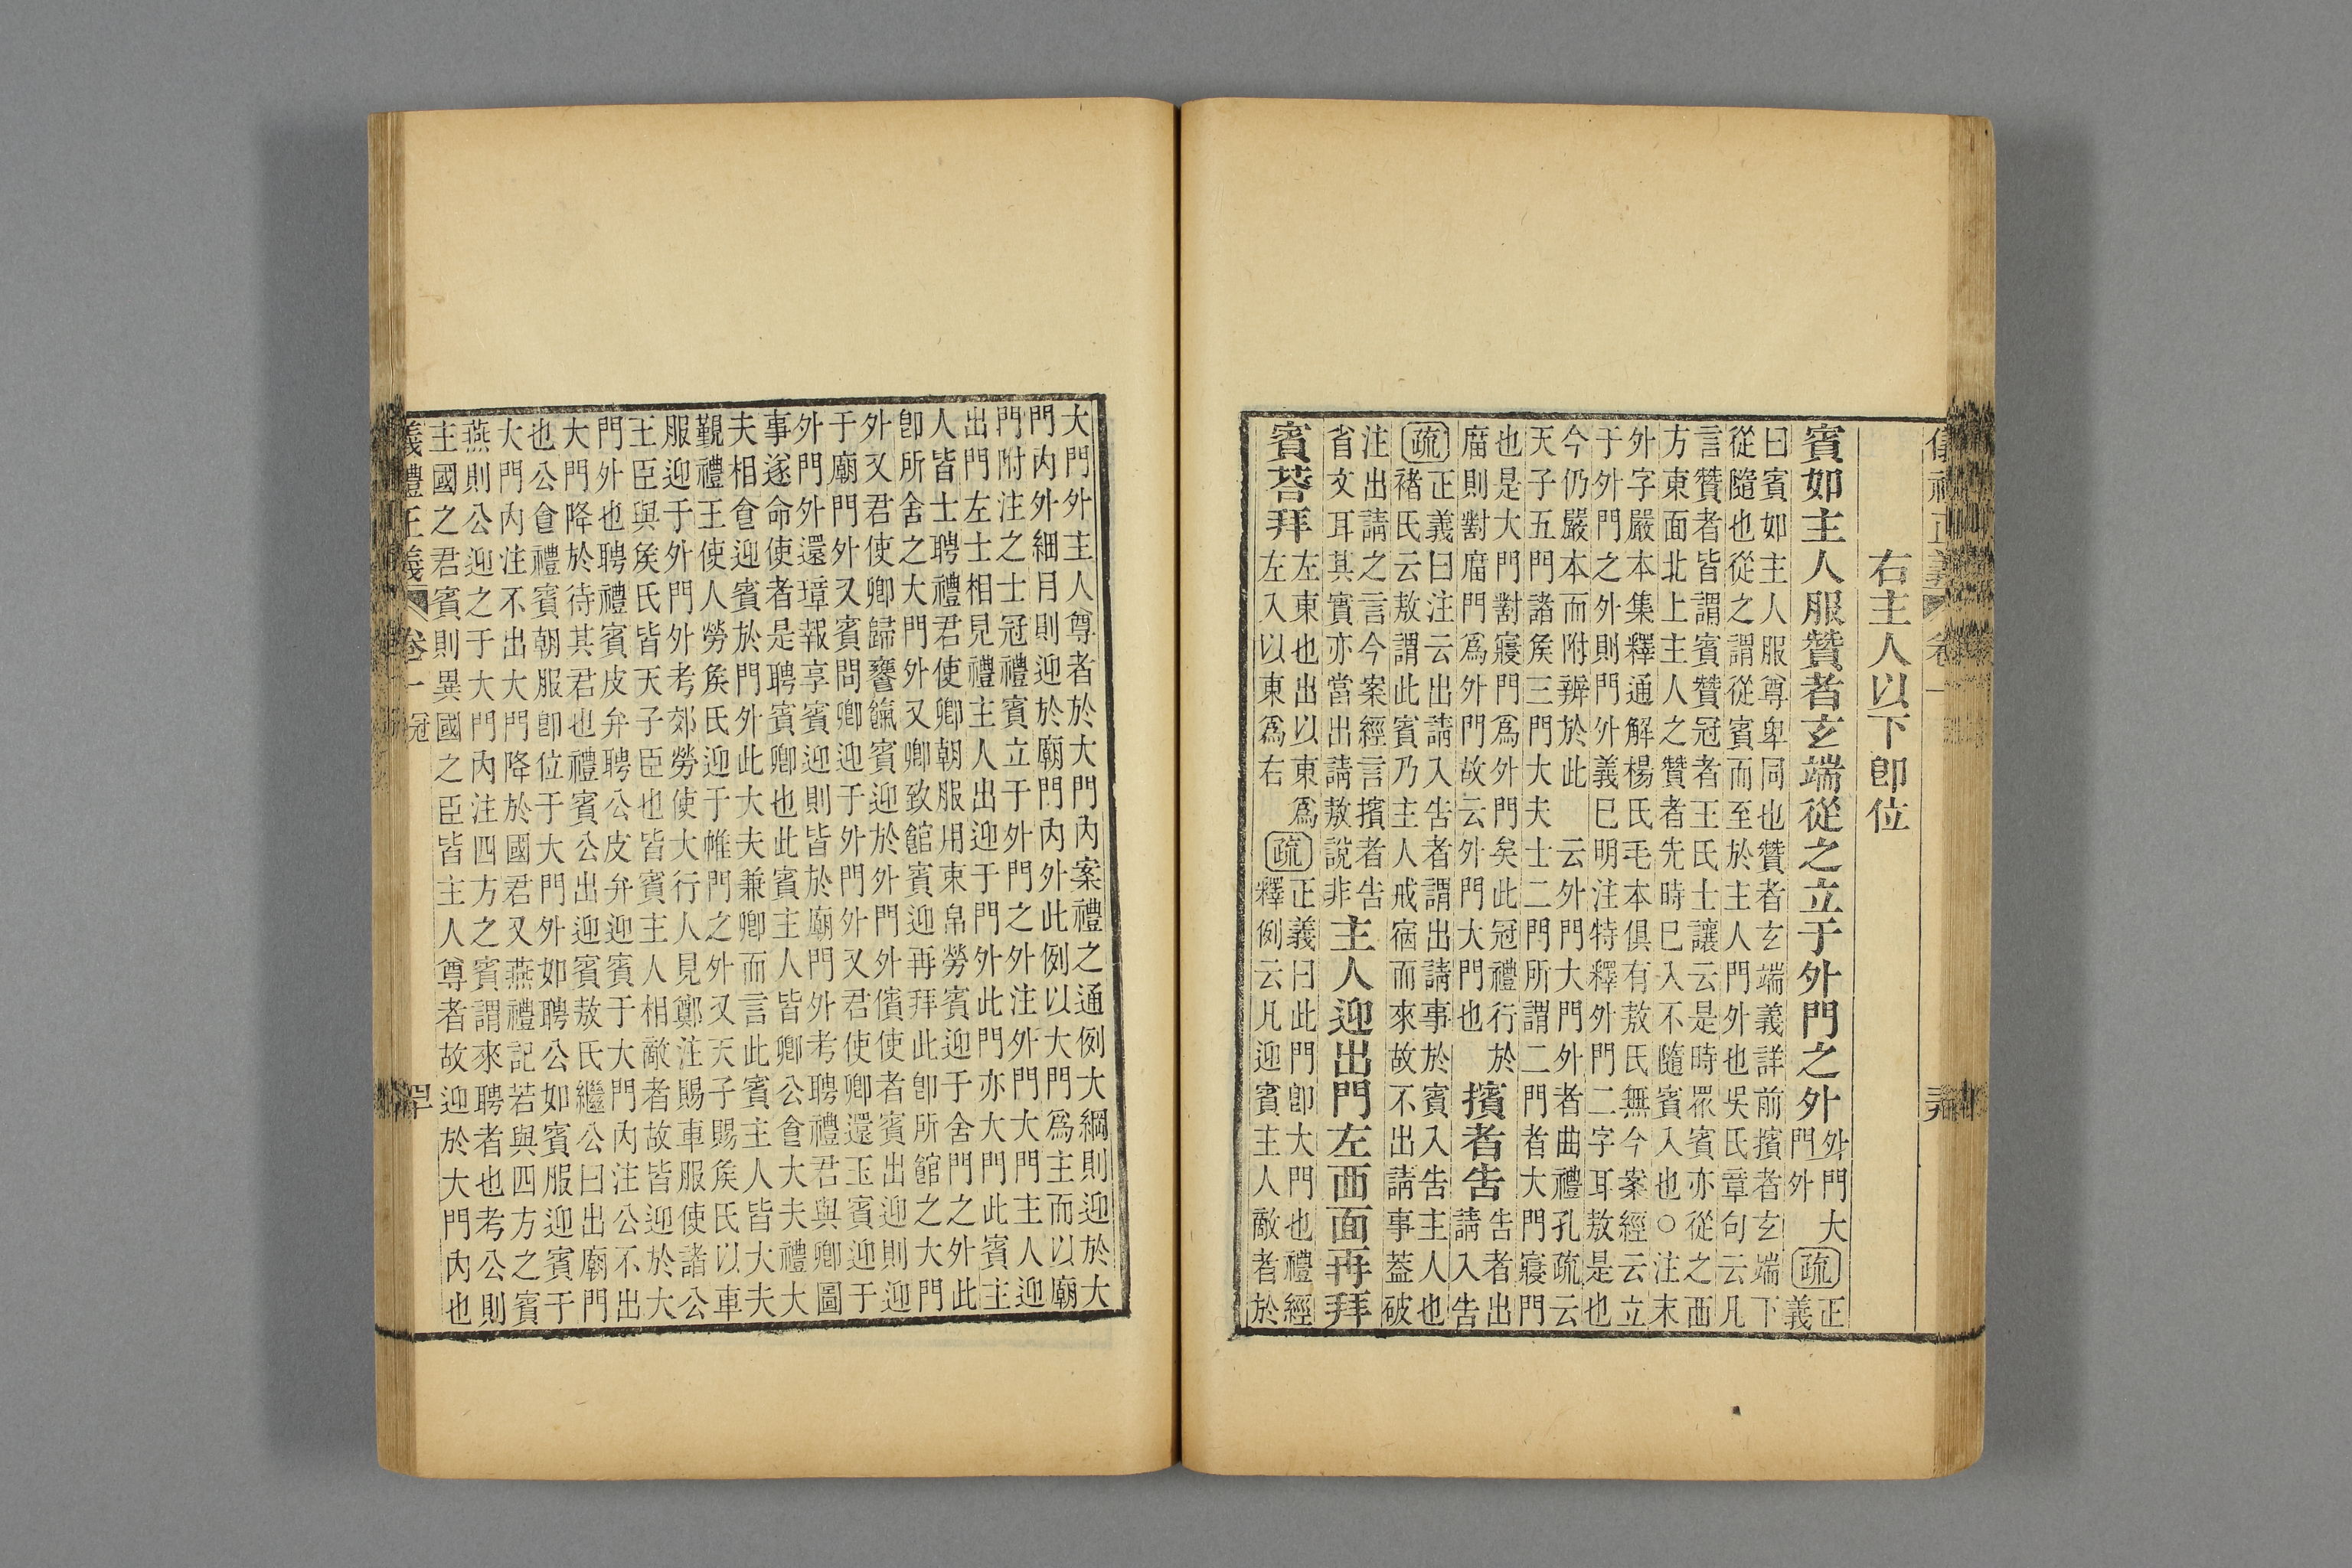 右主人以下卽位
賓如主人服贊者玄端從之立于外門之外
外門大
門外
疏
正
義
曰賓如主人服尊卑同也贊者玄端義詳前擯者玄端下
從隨也從之謂從賓而至於主人門外也吳氏章句云凡
言贊者皆謂賓贊冠者王氏士讓云是時眾賓亦從之西
方東面北上主人之贊者先時巳入不隨賓入也○注末
外字嚴本集釋通解楊氏毛本俱有敖氏無今案經云立
于外門之外則門外義巳明注特釋外門二字耳敖是也
今仍嚴本而附辨於此　云外門大門外者曲禮孔疏云
天子五門諸矦三門大夫士二門所謂二門者大門寢門
也是大門對寢門爲外門矣此冠禮行於
庿則對庿門爲外門故云外門大門也
擯者告
告者出
請入告
疏
正義曰注云出請入告者謂出請事於賓入告主人也
褚氏云敖謂此賓乃主人戒宿而來故不出請事葢破
注出請之言今案經言擯者告
省文耳其賓亦當出請敖說非
主人迎出門左西面再拜
賓荅拜
左東也出以東爲
左入以東爲右
疏
正義曰此門卽大門也禮經
釋例云凡迎賓主人敵者於
大門外主人尊者於大門內案禮之通例大綱則迎於大
門內外細目則迎於廟門內外此例以大門爲主而以廟
門附注之士冠禮賓立于外門之外注外門大門主人迎
出門左士相見禮主人出迎于門外此門亦大門此賓主
人皆士聘禮君使卿朝服用束帛勞賓迎于舍門之外此
卽所舍之大門外又卿致館賓迎再拜此卽所館之大門
外又君使卿歸饔餼賓迎於外門外儐使者賓出迎則迎
于廟門外又賓問卿迎于外門外又君使卿還玉賓迎于
外門外還璋報享賓迎則皆於廟門外考聘禮君與卿圖
事遂命使者是聘賓卿也此賓主人皆卿公食大夫禮大
夫相食迎賓於門外此大夫兼卿而言此賓主人皆大夫
覲禮王使人勞矦氏迎于帷門之外又天子賜矦氏以車
服迎于外門外考郊勞使大行人見鄭注賜車服使諸公
王臣與矦氏皆天子臣也皆賓主人相敵者故皆迎於大
門外也聘禮賓皮弁聘公皮弁迎賓于大門內注公不出
大門降於待其君也禮賓公出迎賓敖氏繼公曰出廟門
也公食禮賓朝服卽位于大門外如聘公如賓服迎賓于
大門內注不出大門降於國君又燕禮記若與四方之賓
燕則公迎之于大門內注四方之賓謂來聘者也考公則
主國之君賓則異國之臣皆主人尊者故迎於大門內也
禮正義　卷一　冠